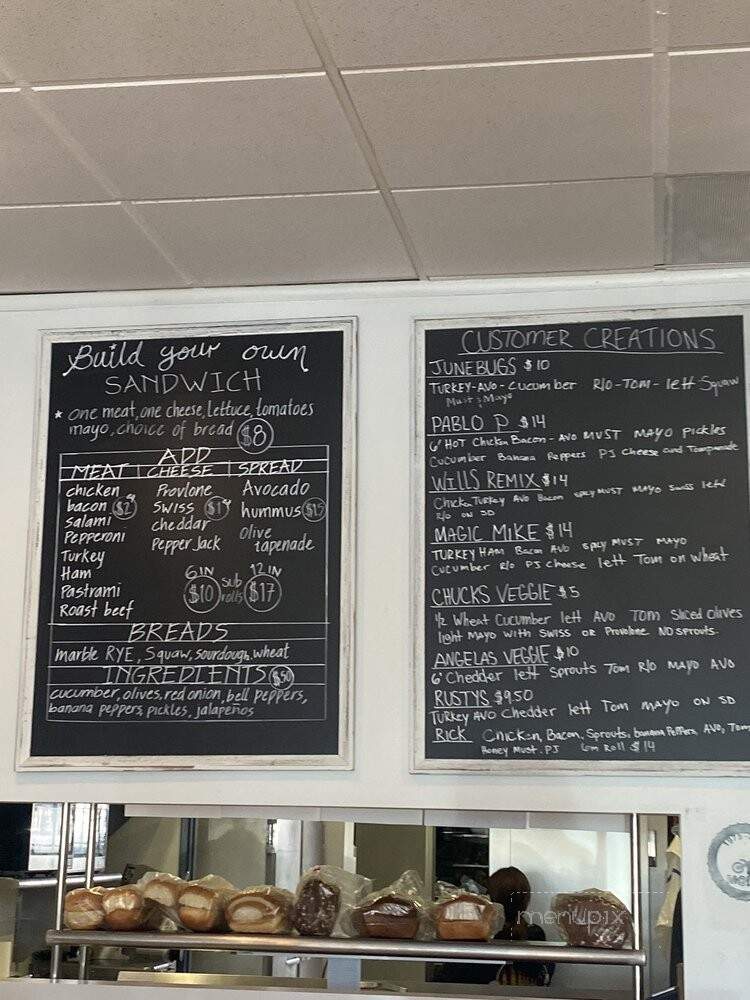 Build your own
SANDWICH
* one meat, one cheese, lettuce, tomatoes
mayo, choice of bread $8
ADD
MEAT | CHEESE | SPREAD
chicken Provlone Avocado
bacon $2 Swiss $1 hummus $1.5
salami cheddar olive
Pepperoni Pepper Jack tapenade
Turkey
Ham 6IN sub 12 IN
Pastrami $10 rolls $17
Roast beef
BREADS
marble RYE, Squaw, sourdough, wheat
INGREDIENTS $.50
cucumber, olives, red onion, bell peppers,
banana peppers, pickles, jalapeños
CUSTOMER CREATIONS
JUNEBUGS $10
TURKEY-AVO-Cucumber R/O-Tom-lett-Squaw
Must; Mayo
PABLO P $14
6" HOT Chicken Bacon - AVO MUST MAYO Pickles
Cucumber Banana Peppers PJ Cheese and Tampenade
WILLS REMIX $14
Chicken Turkey Avo Bacon spicy MUST MAYO Swiss lett
R/o ON SD
MAGIC MIKE $14
TURKEY HAM Bacon AVO spicy MUST MAYO
Cucumber R/o PJ cheese lett Tom on wheat
CHUCKS VEGGIE $5
1/2 Wheat Cucumber lett AVO TOM Sliced olives
light MAYO with SWISS OR Provolone NO sprouts.
ANGELAS VEGGIE $10
6" Chedder lett Sprouts Tom R/O MAYO AVO
RUSTYS $9.50
Turkey AVO Chedder lett Tom MAYO ON SD
RICK Chicken, Bacon, Sprouts, banana Peppers, AVO, Tom
Honey Must. PJ 6in Roll $14
menupix